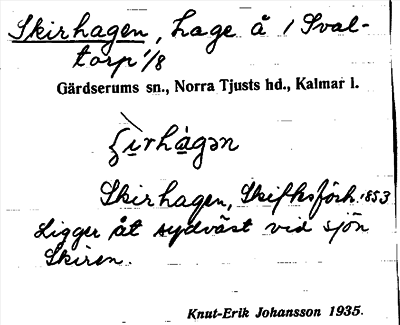 Skirhagen, hage å 1 Sval-
torp 1/8
Gärdserums sn., Norra Tjusts hd., Kalmar l.
Skirhagen, Skifksförh. 1853
Ligger åt sydväst vid sjön
Skiren.
Knut-Erik Johansson 1935.